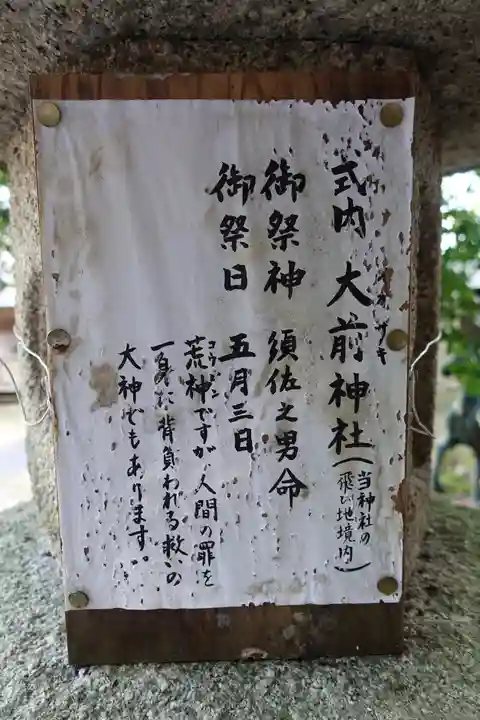 式内 大前神社(当神社の飛び地境内)
オオサキ
御祭神 須佐之男命
御祭日 五月三日
コウジン
荒神ですが、人間の罪を
一身に背負われる救いの
大神でもあります。